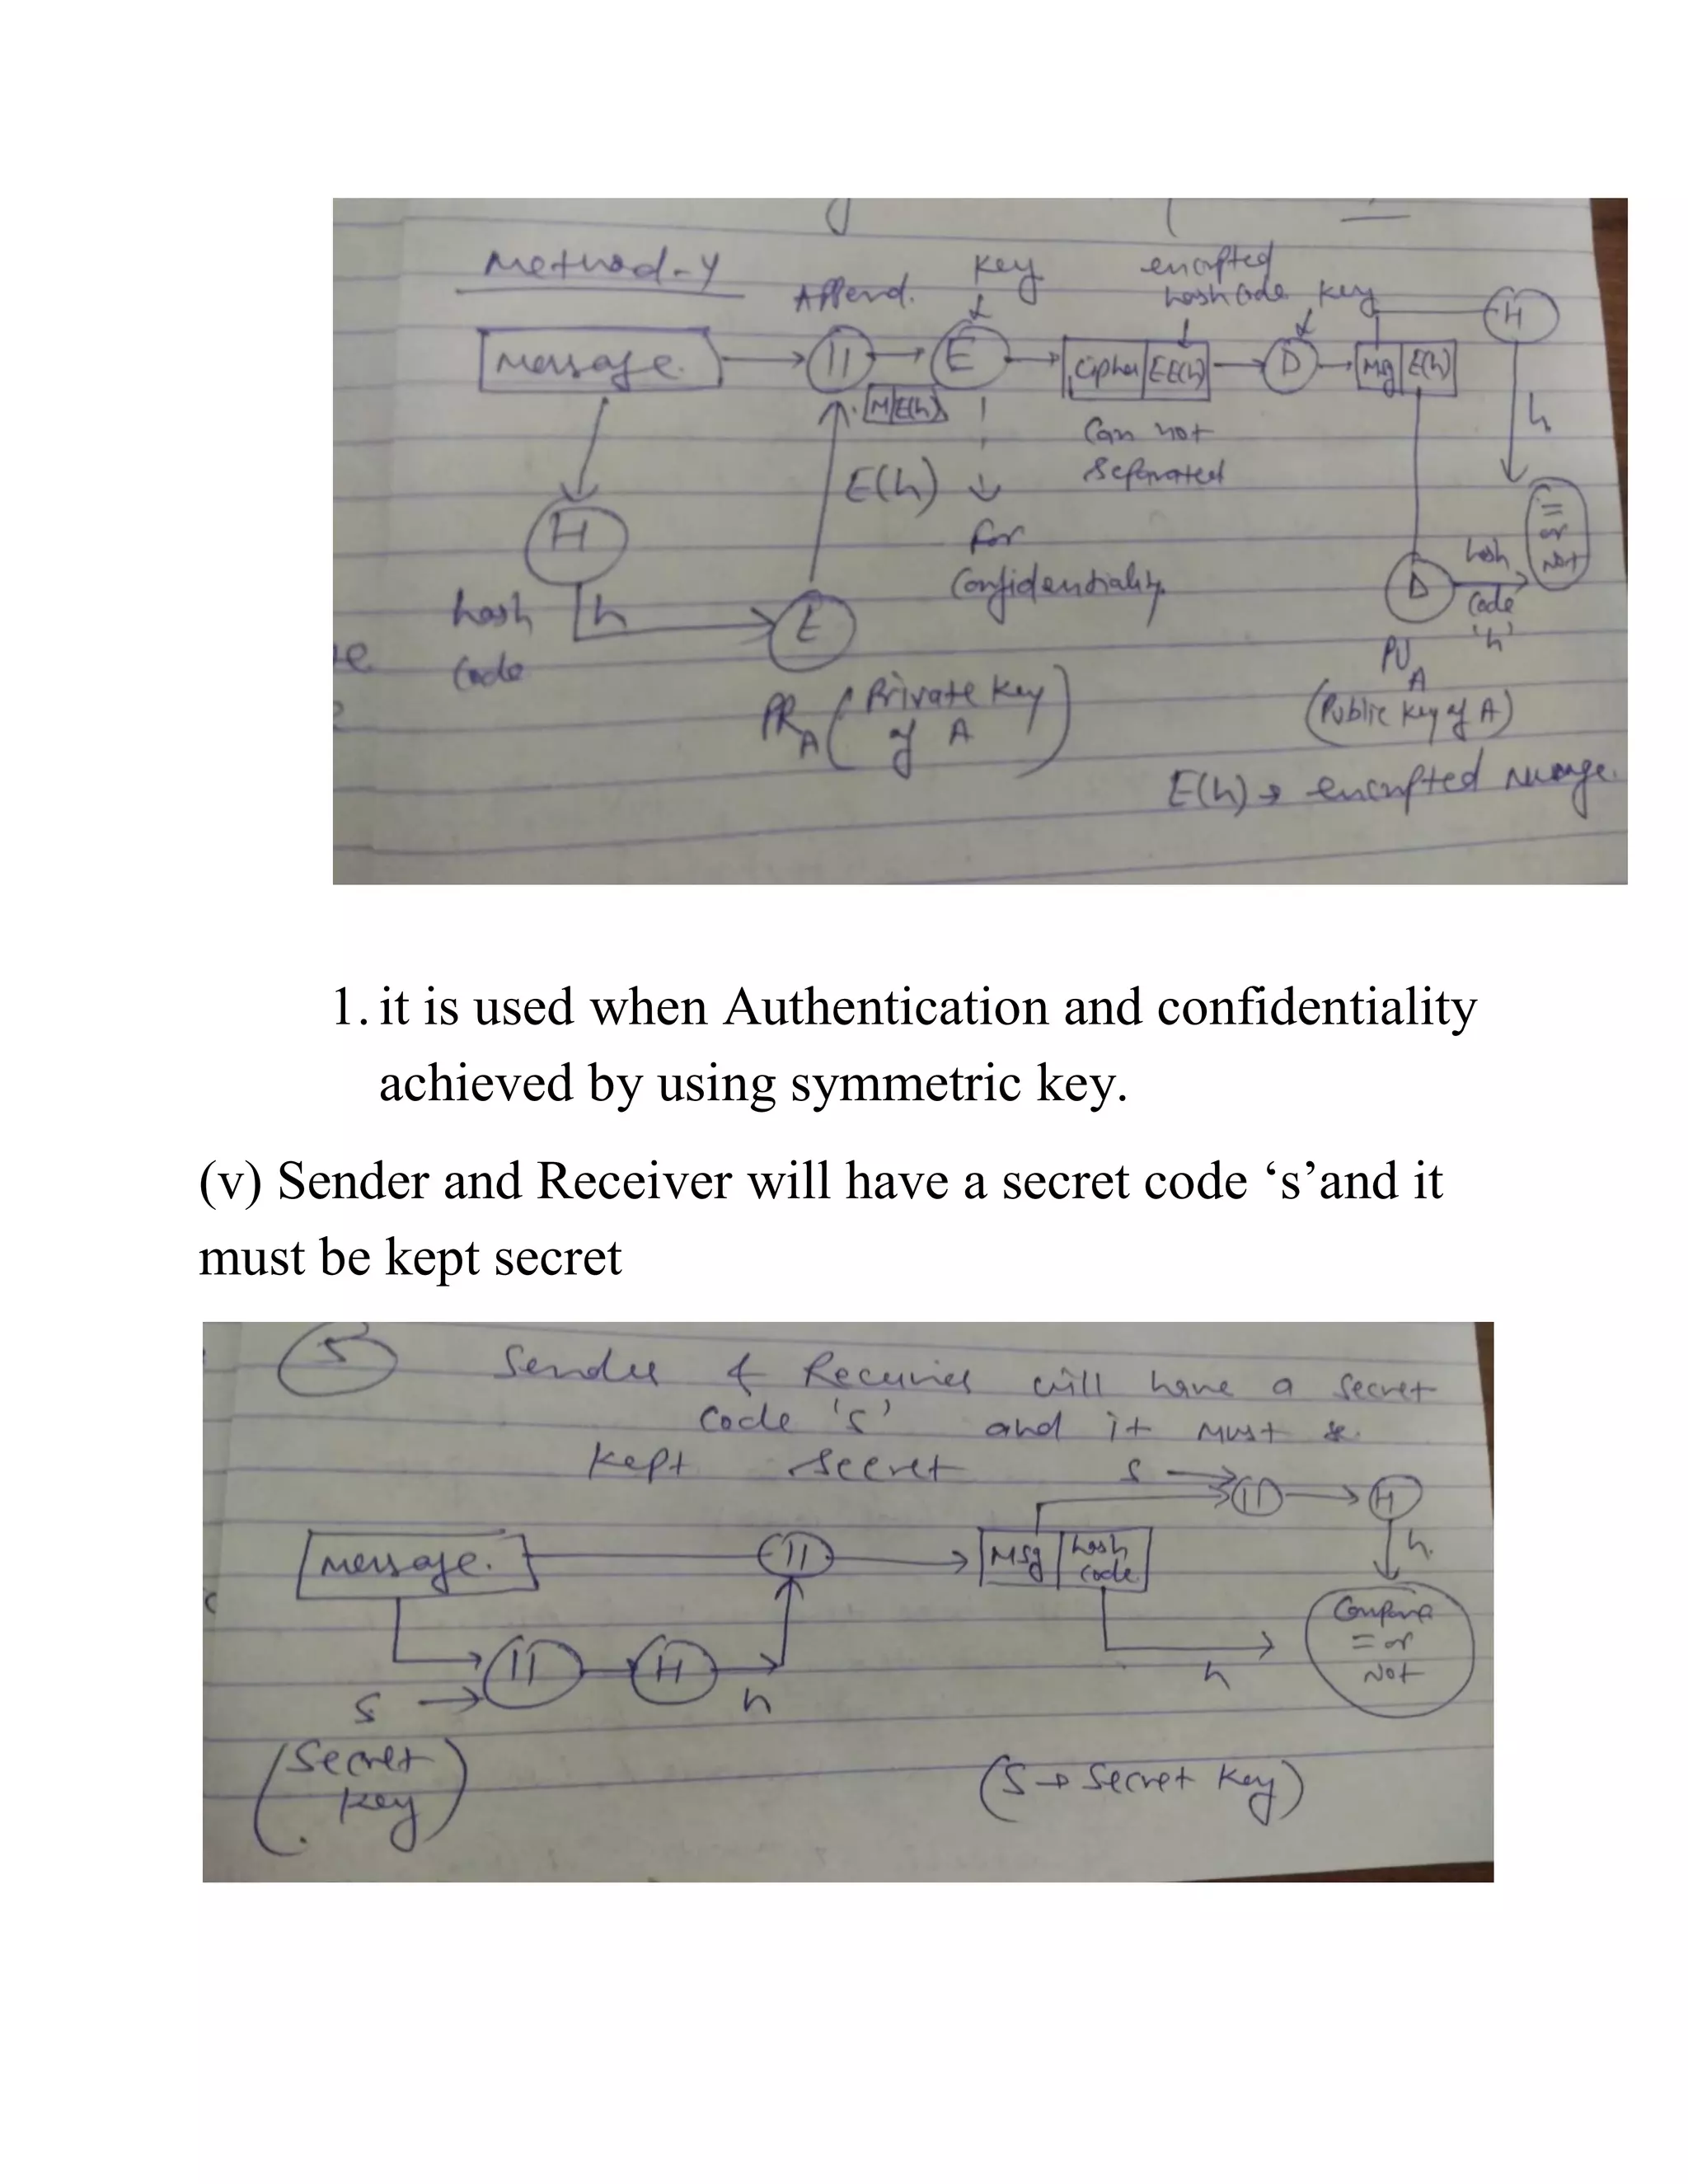 Method-4
Append.
Key
encrypted
hashcode
Key
H
Message.
||
E
Cipher
EE(h)
D
Msg
E(h)
M
E(h)
h
Can not
Separated
E(h)
= or Not
H
For
Confidentiality
hash
code
h
E
D
hash
code
'h'
PR A (Private Key
of A)
PU A
(Public key of A)
E(h) → encrypted
1. it is used when Authentication and confidentiality
achieved by using symmetric key.
(v) Sender and Receiver will have a secret code ‘s’and it
must be kept secret
5
Sender & Reciever will have a secret
Code 's' and it must be
kept secret
S
||
H
Message.
||
Msg
hash
code
h.
Compare
= or
Not
||
H
h
h
S
(Secret
key)
(S → Secret Key)